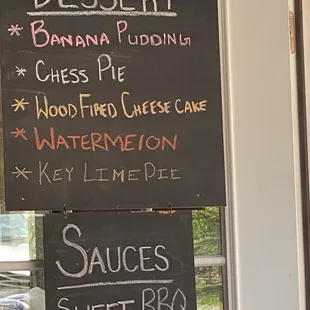 DESSERT
* BANANA PUDDING
* CHESS PIE
* WOOD FIRED CHEESE CAKE
* WATERMELON
* KEY LIME PIE
SAUCES
SWEET BBQ